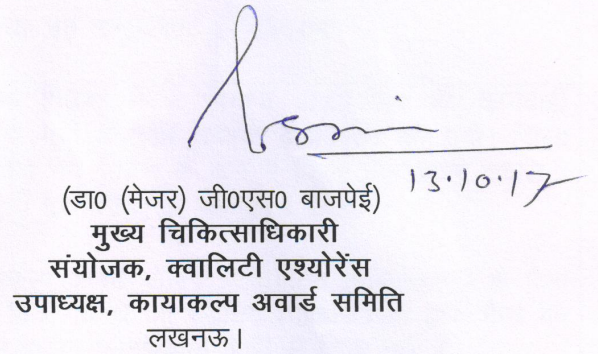 13.10.17
(डा0 (मेजर) जी0एस0 बाजपेई)
मुख्य चिकित्साधिकारी
संयोजक, क्वालिटी एश्योरेंस
उपाध्यक्ष, कायाकल्प अवार्ड समिति
लखनऊ।